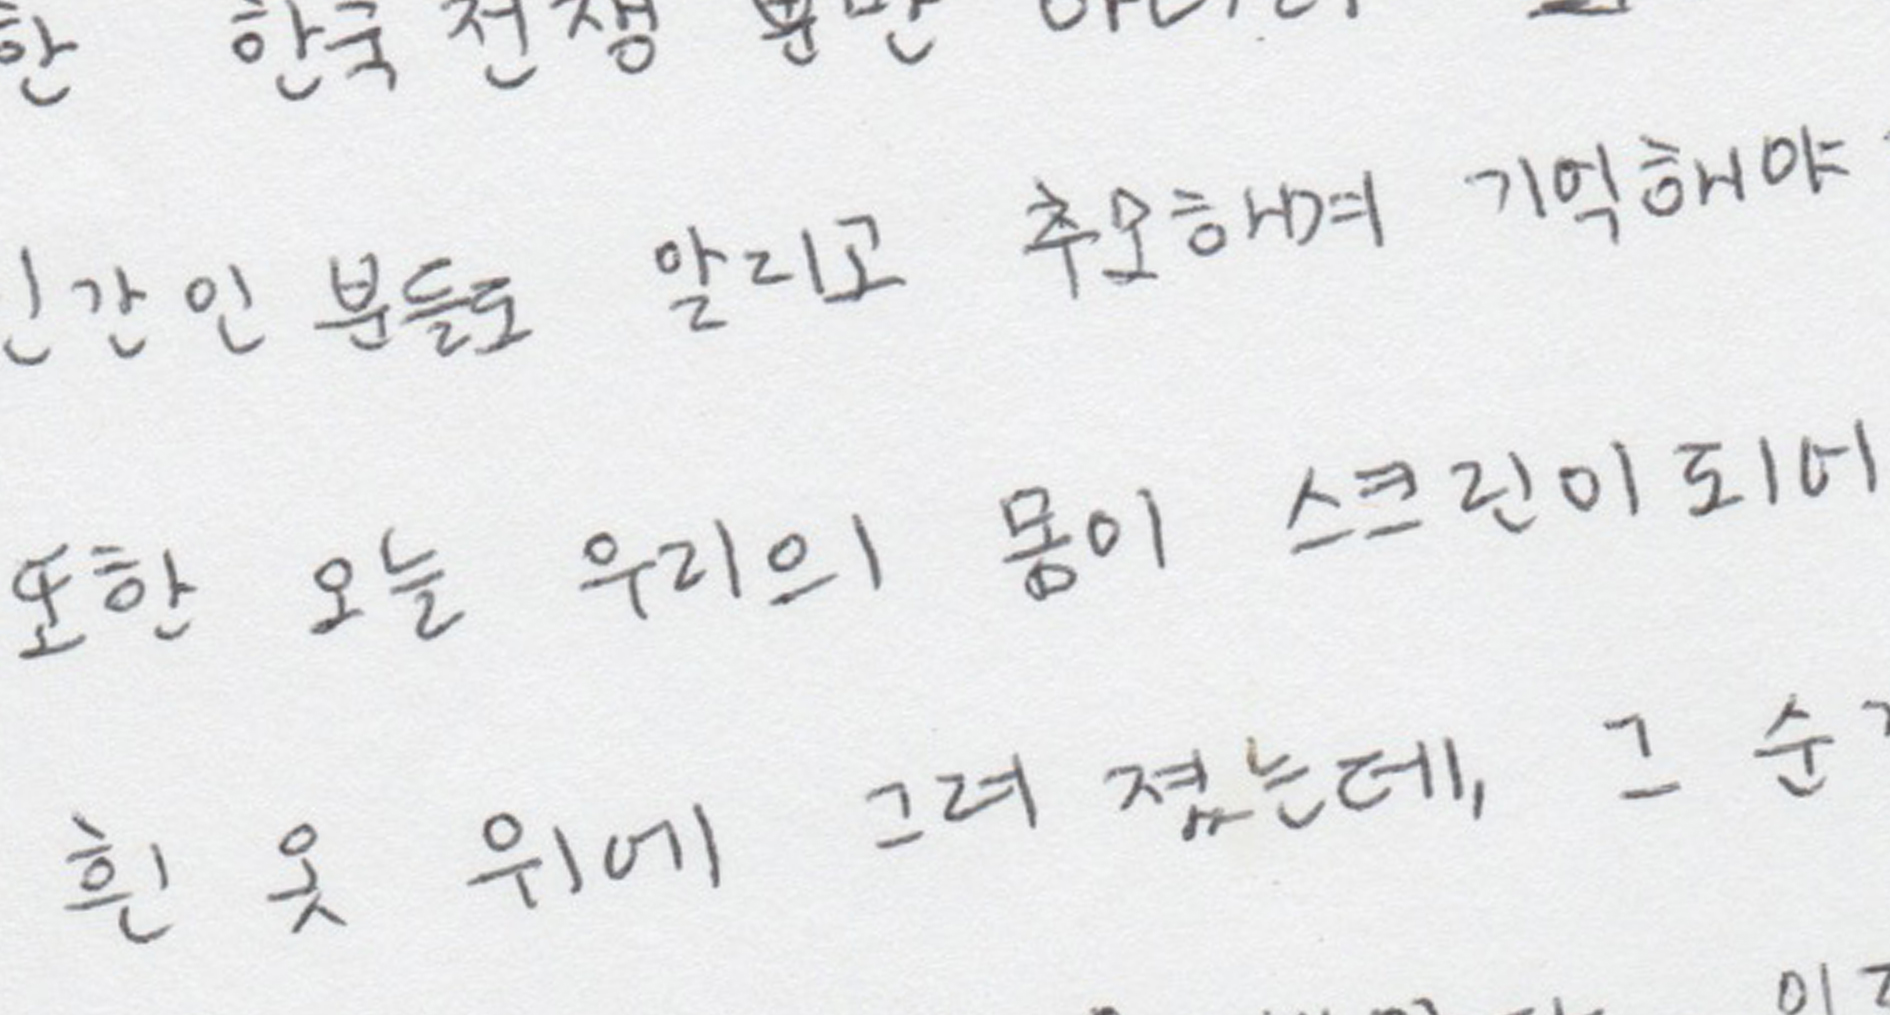 한 한국전쟁 뿐만
간인 분들도 알리고 추모해며 기억해야
또한 오늘 우리의 몸이 스크린이 되어
흰 옷 위에 그려 졌는데, 그 순